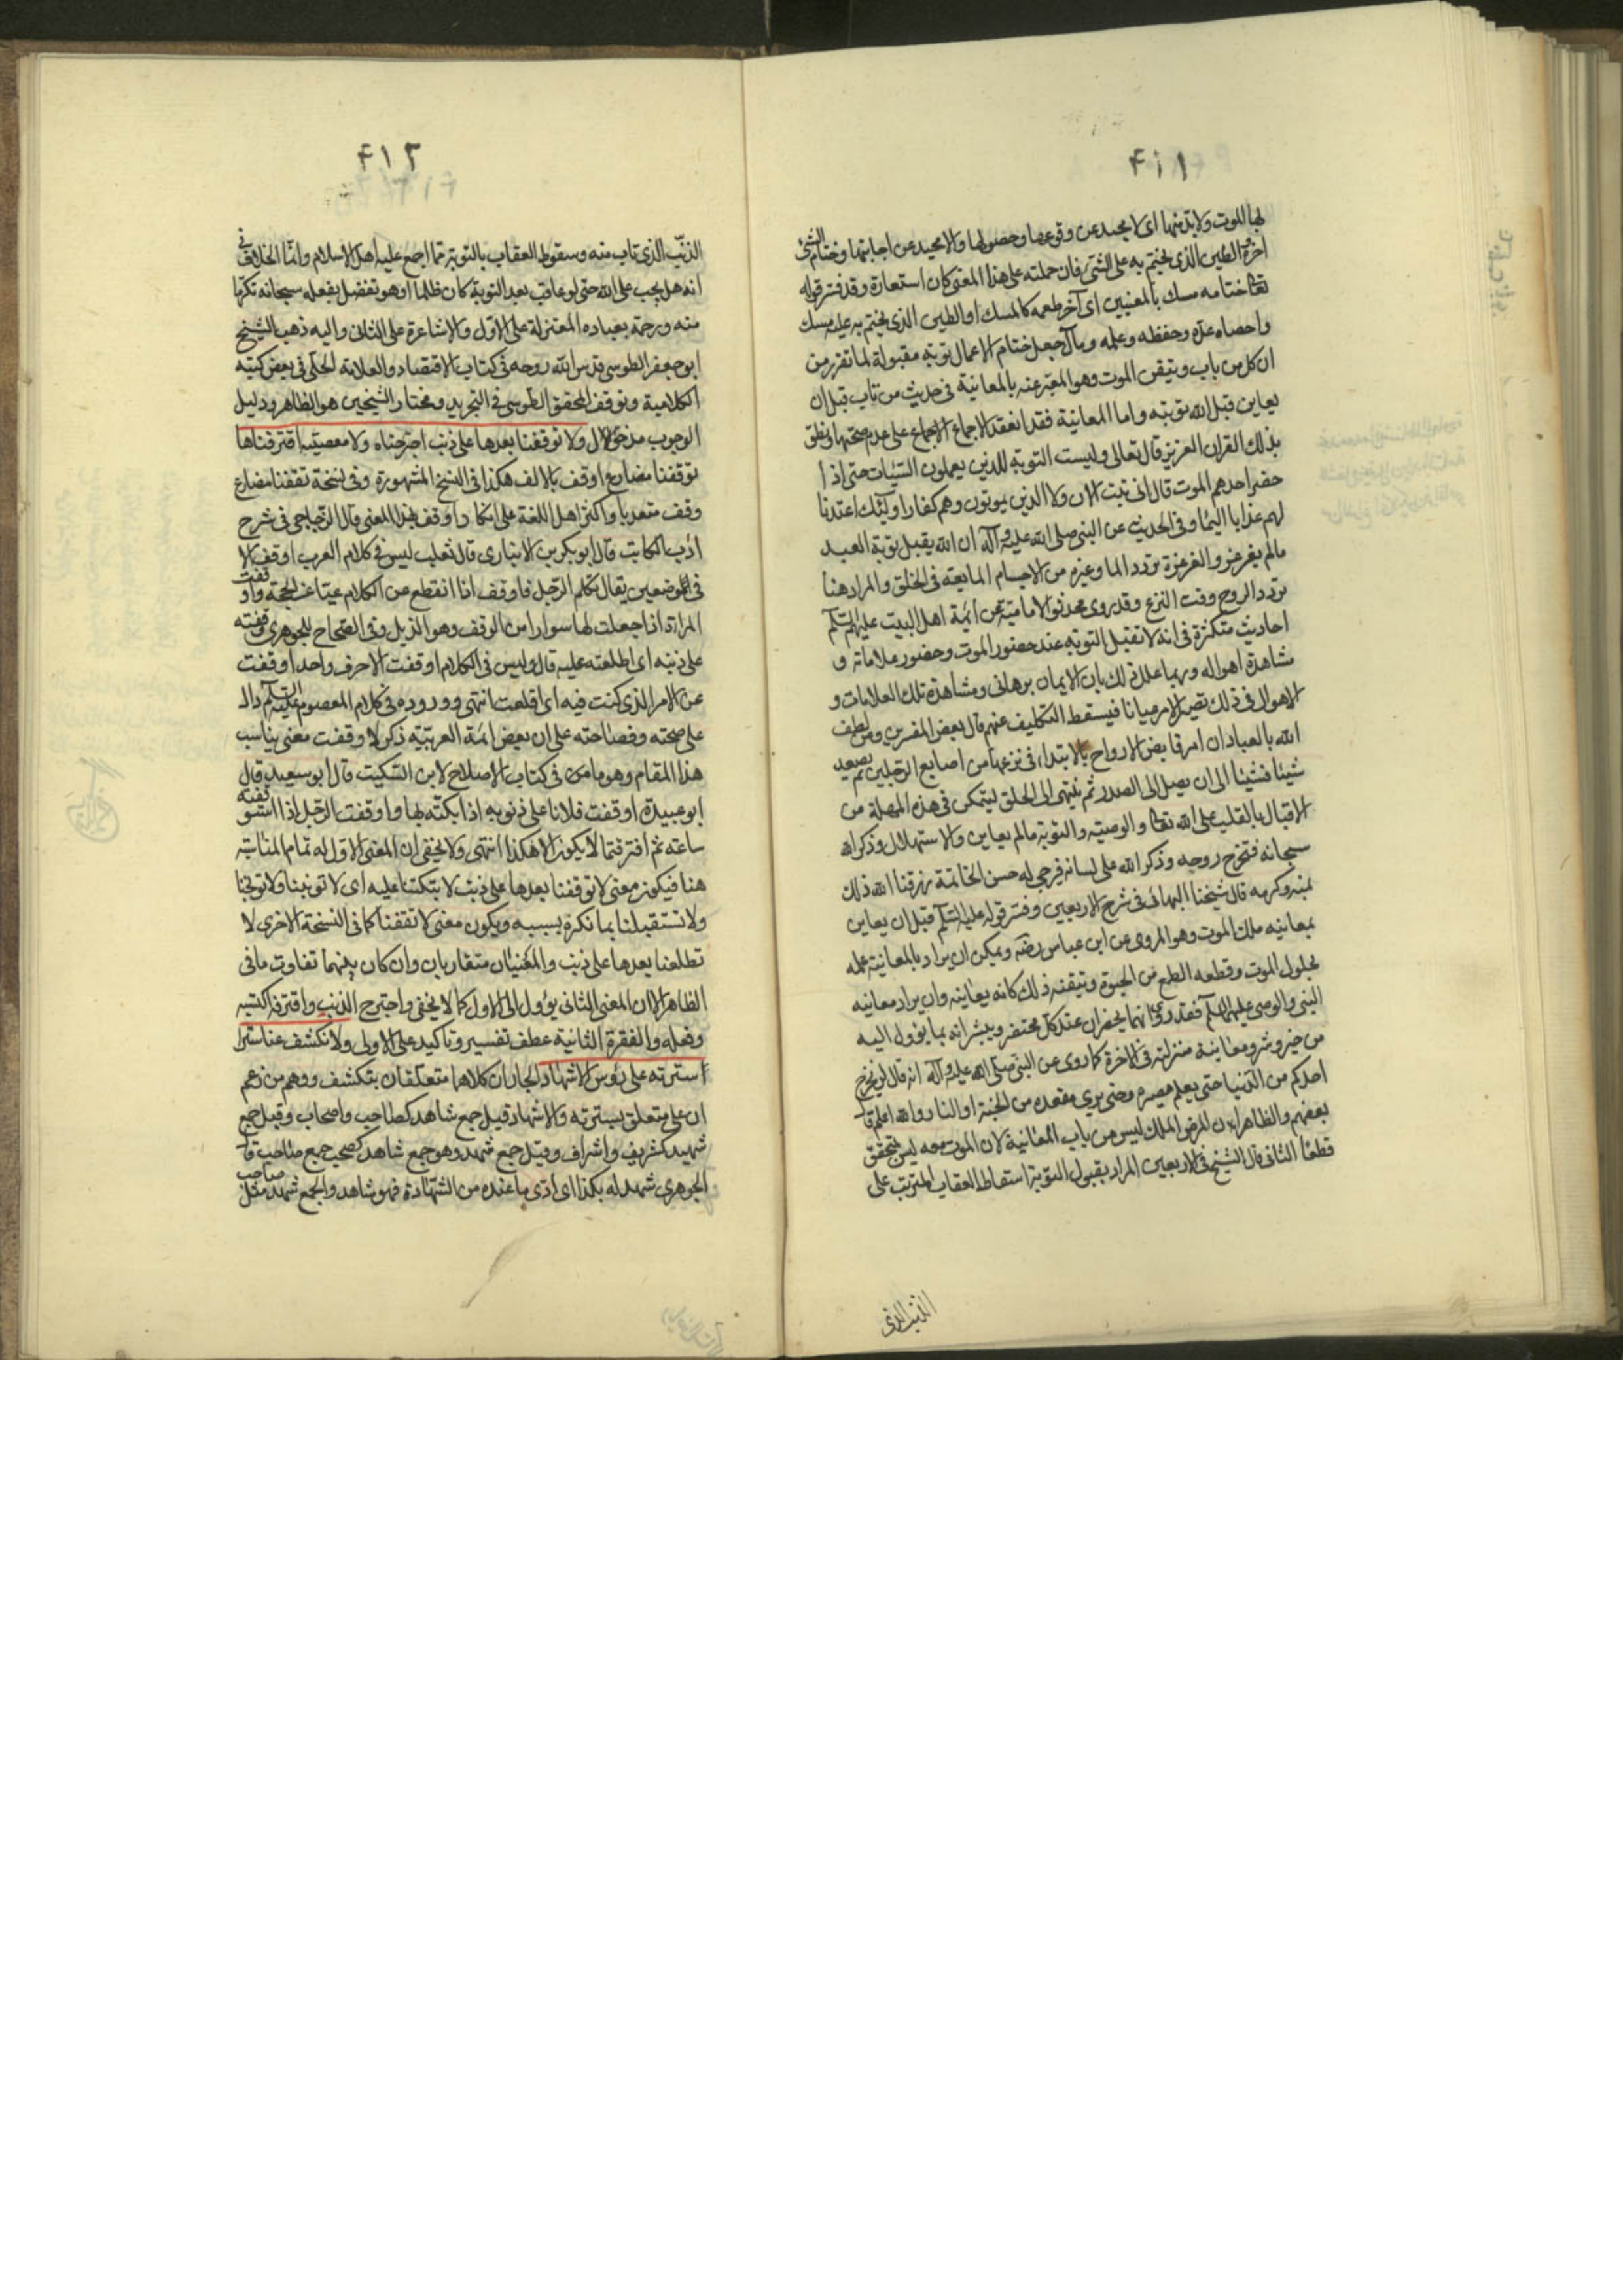 ۴۱۱
لها الموت ولابد منها اى لا محيد عن وقوعها وحصولها ولا محيد عن اجابتها وختام الشئ
آخره الطين الذى يختم به على الشئ فان حملته على هذا المعنى كان استعارة وقد فسر قوله
تعالى ختامه مسك بالمعنيين اى آخر طعمه كالمسك او الطين الذى يختم به عليه مسك
واحصاه عدّه وحفظه وعلمه ومآل جعل ختام الاعمال توبة مقبولة لما تقرر من
ان كل من تاب وتيقن الموت وهو المعبر عنه بالمعاينة فى حديث من تاب قبل ان
يعاين قبل الله توبته واما المعاينة فقد انعقد الاجماع الاجماع على عدم صحتها ونطق
بذلك القران العزيز قال تعالى وليست التوبة للذين يعملون السيّئات حتى اذا
حضر احدهم الموت قال انى تبت الان ولا الذين يموتون وهم كفار اولئك اعتدنا
لهم عذابا اليما وفى الحديث عن النبى صلى الله عليه وآله ان الله يقبل توبة العبد
مالم يغرغر والغرغرة تردد الما وغيره من الاجسام المايعة فى الحلق والمراد هنا
تردد الروح وقت النزع وقد روى محدثوا الامامية عن ائمة اهل البيت عليهم السلم
احاديث متكثرة فى انه لا تقبل التوبة عند حضور الموت وحضور علاماته و
مشاهدة اهواله وربما علل ذلك بان الايمان برهانى ومشاهدة تلك العلامات و
الاهوال فى ذلك تصير الامر عيانا فيسقط التكليف عنهم قال بعض المفسرين ومن لطف
الله بالعباد ان امر قابض الارواح بالابتداء فى نزعها من اصابع الرجلين ثم يصعد
شيئا فشيئا الى ان يصل الى الصدر ثم ينتهى الى الحلق ليتمكن فى هذه المهلة من
الاقبال بالقلب على الله تعالى والوصية والتوبة مالم يعاين والاستهلال وذكر الله
سبحانه فتخرج روحه وذكر الله على لسانه فيرجى له حسن الخاتمة رزقنا الله ذلك
بمنه وكرمه قال شيخنا البهائى فى شرح الاربعين وفسر قوله عليه السلم قبل ان يعاين
بمعاينة ملك الموت وهو المروى عن ابن عباس رضه ويمكن ان يراد بالمعاينة علمه
بحلول الموت وقطعه الطمع من الحيوة وتيقنه ذلك كانه يعاينه وان يراد معاينه
النبى والوصى عليهما السلم فقد روى انهما يحضران عند كل محتضر ويبشرانه بما يؤول اليه
من خير وشر ومعاينة منزلته فى الاخرة كما روى عن النبى صلى الله عليه وآله انه قال لن يخرج
احدكم من الدنيا حتى يعلم مصيره وحتى يرى مقعده من الجنة او النار والله اعلم قا
بعضهم والظاهر ان المرض الملك ليس من باب المعاينة لان الموت معه ليس بمتحقق
قطعا الثانى قال الشيخ فى الاربعين المراد بقبول التوبة اسقاط العقاب المترتب على
الذنب الذى
۴۱۲
الذنب الذى تاب منه وسقوط العقاب بالتوبة مما اجمع عليه اهل الاسلام وانما الخلاف فى
انه هل يجب على الله حتى لو عاقب بعد التوبة كان ظلما او هو تفضل يفعله سبحانه تكرما
منه ورحمة بعباده المعتزلة على الاول والاشاعرة على الثانى واليه ذهب الشيخ
ابو جعفر الطوسى قدس الله روحه فى كتاب الاقتصاد والعلامة الحلى فى بعض كتبه
الكلامية وتوقف المحقق الطوسى فى التجريد ومختار الشيخين هو الظاهر ودليل
الوجوب مدخول ولا توقفنا بعدها على ذنب اجترحناه ولا معصية اقترفناها
توقفنا مضارع اوقف بالالف هكذا فى النسخ المشهورة وفى نسخة تقفنا مضارع
وقف متعديا واكثر اهل اللغة على انكار اوقف بهذا المعنى قال الزجاجى فى شرح
ادب الكاتب قال ابو بكر بن الانبارى قال ثعلب ليس فى كلام العرب اوقف الا
فى الموضعين يقال تكلم الرجل فاوقف اذا انقطع عن الكلام عيّا عن الحجة واوقفت
المراة اذا جعلت لها سوارا من الوقف وهو الذبل وفى الصحاح للجوهرى وقفته
على ذنبه اى اطلعته عليه قال وليس فى الكلام اوقفت الا حرف واحد اوقفت
عن الامر الذى كنت فيه اى اقلعت انتهى ووروده فى كلام المعصوم عليه السلم دال
على صحته وفصاحته على ان بعض ائمة العربيّة ذكر لاوقفت معنى يناسب
هذا المقام وهو ما من فى كتاب الاصلاح لابن السكيت قال ابو سعيد قال
ابو عبيدة اوقفت فلانا على ذنوبه اذا بكتّه بها واوقفت الرجل اذا استوقفته
ساعته ثم افترقتما لا يكون الا هكذا انتهى ولا يخفى ان المعنى الاول له تمام المناسبة
هنا فيكون معنى لا توقفنا بعدها على ذنب لا تبكتنا عليه اى لا تونبنا ولا توبخنا
ولا تستقبلنا بما نكره بسببه ويكون معنى لا تقفنا كما فى النسخة الاخرى لا
تطلعنا بعدها على ذنب والمعنيان متقاربان وان كان بينهما تفاوت ما فى
الظاهر الا ان المعنى الثانى يؤول الى الاول كما لا يخفى واجترح الذنب واقترفه اكتسبه
وفعله والفقرة الثانية عطف تفسير وتاكيد على الاولى ولا تكشف عنا سترا
سترته على رؤس الاشهاد الجاران كلاهما متعلقان بتكشف ووهم من زعم
ان على متعلق بسترته والاشهاد قيل جمع شاهد كصاحب واصحاب وقيل جمع
شهيد كشريف واشراف وقيل جمع شهد وهو جمع شاهد كصحب جمع صاحب قا
الجوهرى شهد له بكذا اى ادّى ما عنده من الشهادة فهو شاهد والجمع شهد مثل صاحب